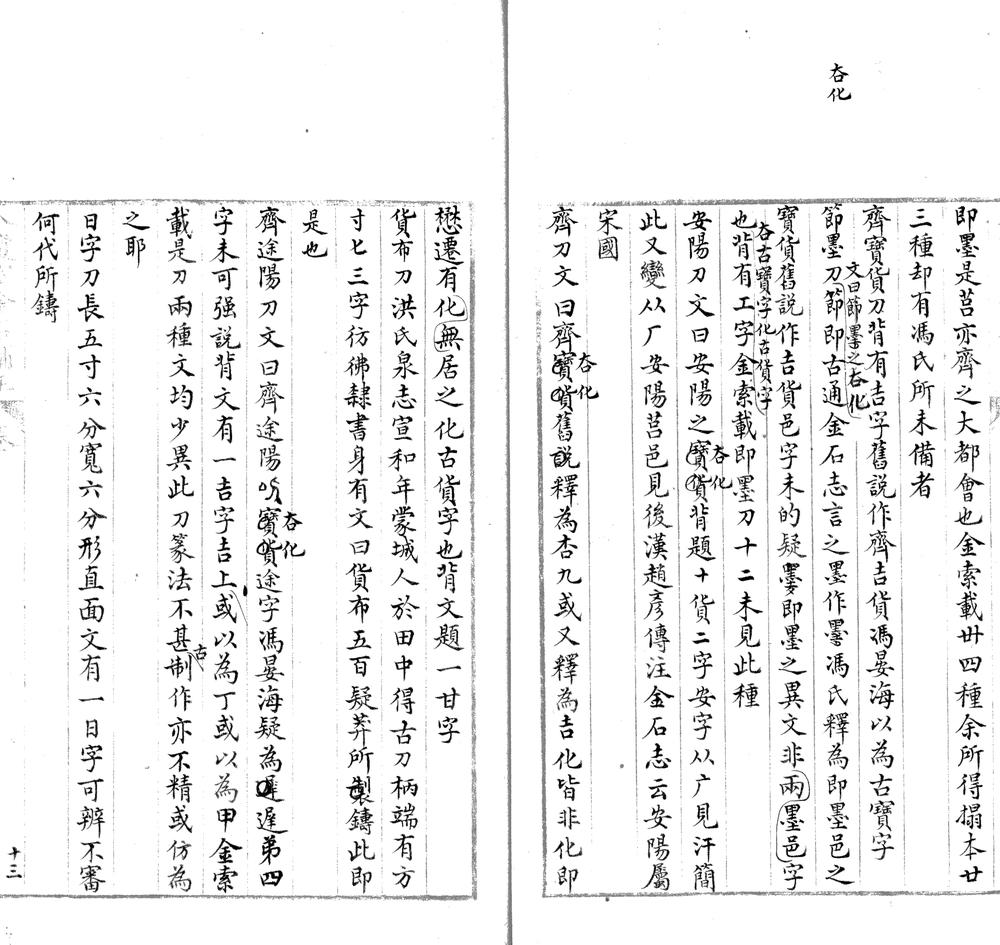 夻化
即墨是莒亦齊之大都會也金索載卅四種余所得搨本廿
三種却有馮氏所未備者
齊寶貨刀背有吉字舊說作齊吉貨馮晏海以為古寶字
文曰節墨之夻化
節墨刀節即古通金石志言之墨作墨馮氏釋為即墨邑之
寶貨舊說作吉貨邑字未的疑墨即墨之異文非兩墨邑字
夻古寶字化古貨字
也背有工字金索載即墨刀十二未見此種
安陽刀文曰安陽之寶貨背題十貨二字安字从广見汗簡
夻化
此又變从厂安陽莒邑見後漢趙彥傳注金石志云安陽屬
宋國
齊刀文曰齊寶貨舊說釋為杏九或又釋為吉化皆非化即
夻化
懋遷有化無居之化古貨字也背文題一甘字
貨布刀洪氏泉志宣和年蒙城人於田中得古刀柄端有方
寸七三字彷彿隸書身有文曰貨布五百疑莽所製鑄此即
是也
齊途陽刀文曰齊途陽寶貨途字馮晏海疑為遲第四
夻化
字未可强說背文有一吉字吉上或以為丁或以為甲金索
載是刀兩種文均少異此刀篆法不甚古制作亦不精或仿為
之耶
日字刀長五寸六分寬六分形直面文有一日字可辨不審
何代所鑄
十三